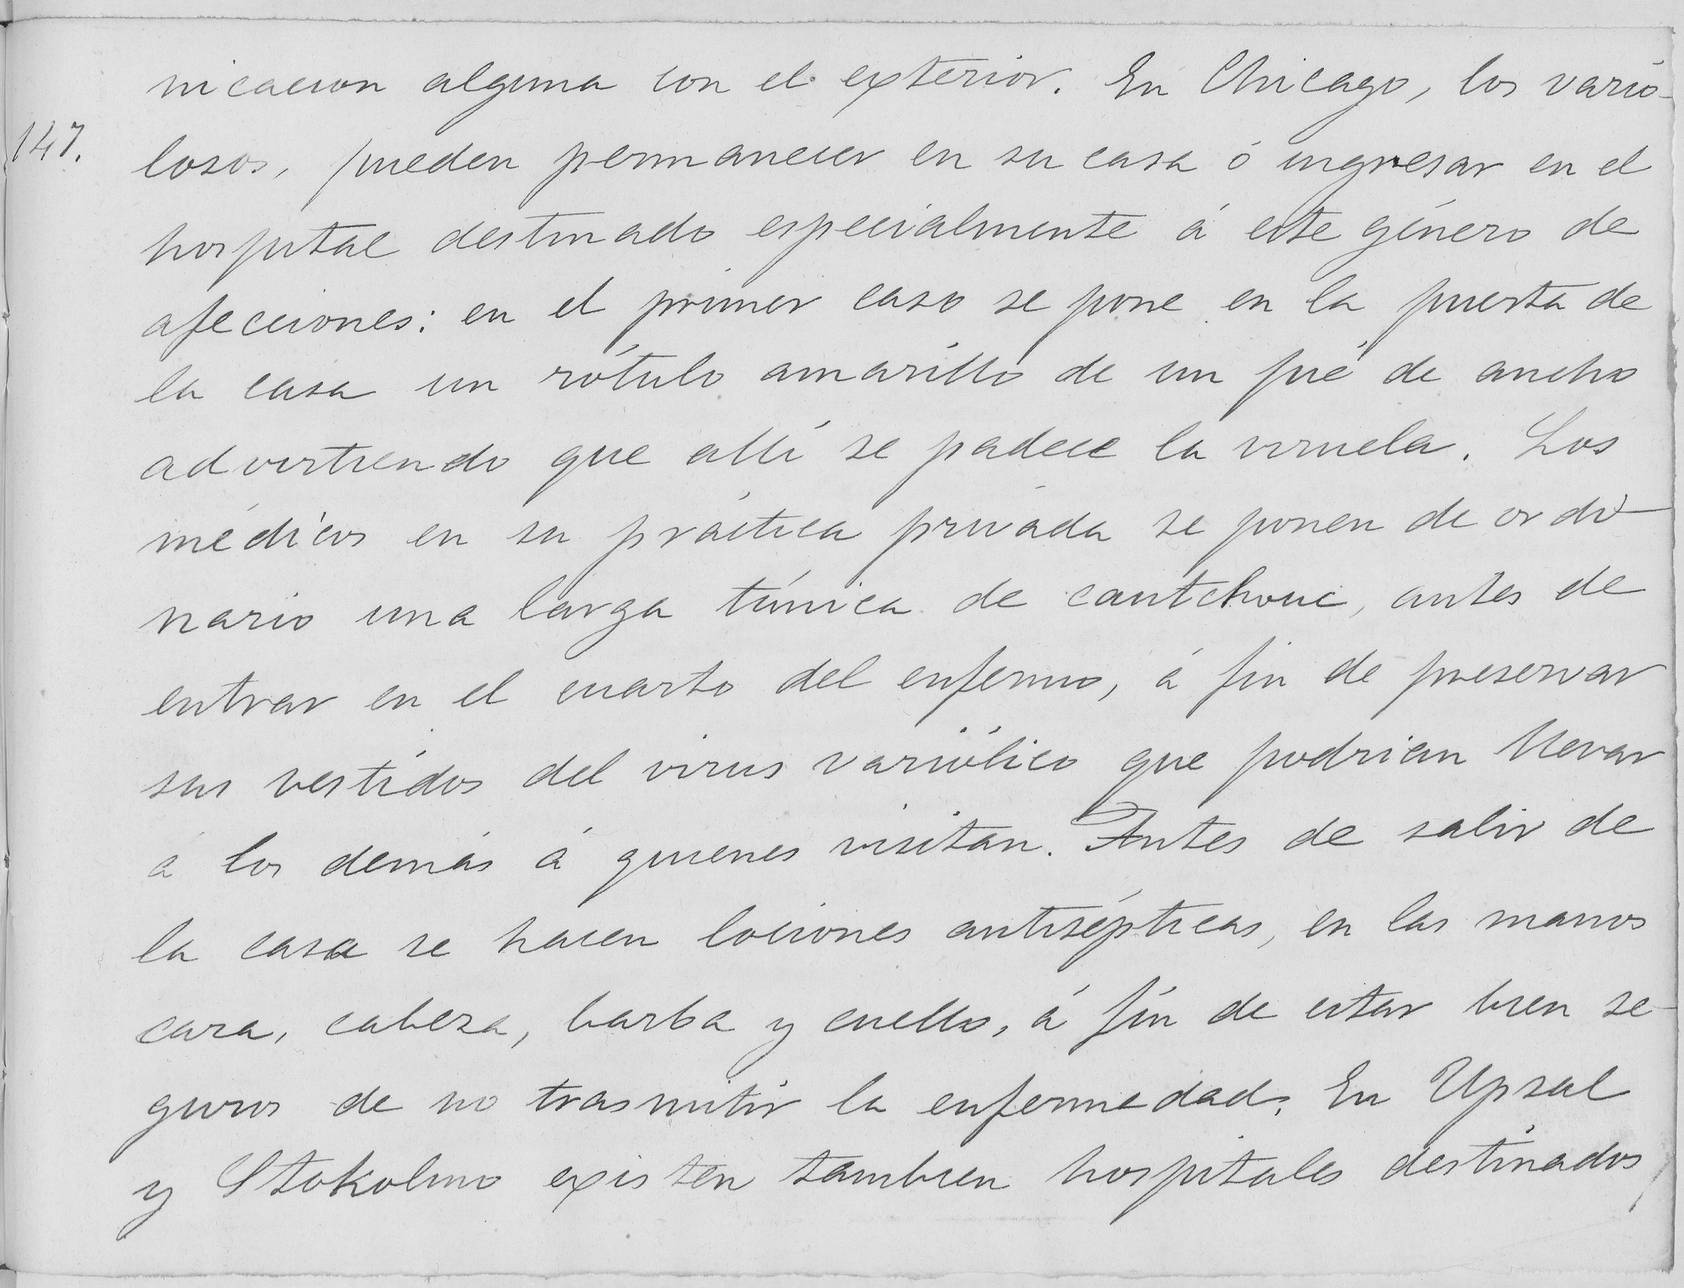 nicacion alguna con el exterior. En Chicago, los vario-
147.
losos, pueden permanecer en su casa ó ingresar en el
hospital destinado especialmente á este género de
afecciones: en el primer caso se pone en la puerta de
la casa un rótulo amarillo de un pié de ancho
advirtiendo que allí se padece la viruela. Los
médicos en su práctica privada se ponen de ordi-
nario una larga túnica de cautchouc, antes de
entrar en el cuarto del enfermo, á fin de preservar
sus vestidos del virus variólico que podrian llevar
á los demás á quienes visitan. Antes de salir de
la casa se hacen lociones antisépticas, en las manos
cara, cabeza, barba y cuello, á fin de estar bien se-
guros de no trasmitir la enfermedad. En Upsal
y Stokolmo existen tambien hospitales destinados